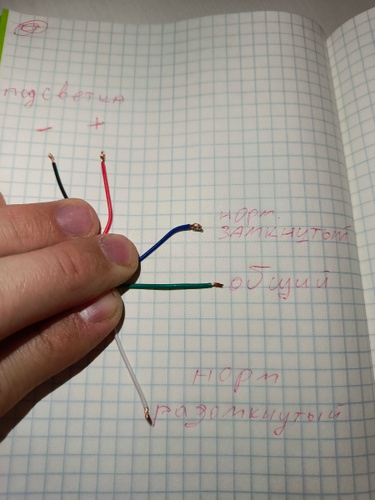 подсветка
- +
норм.
ЗАМКНУТЫЙ
общий
норм
разомкнутый